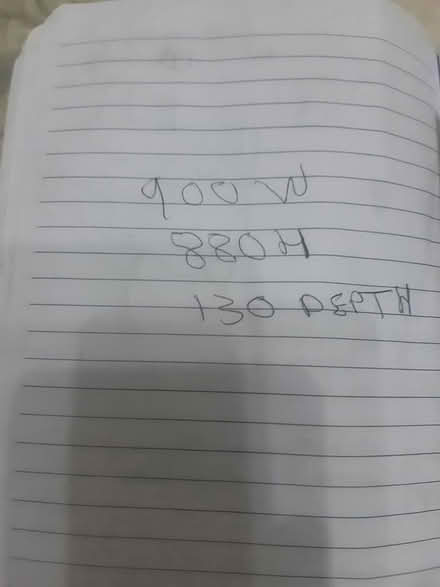 900 W
880 H
130 DEPTH